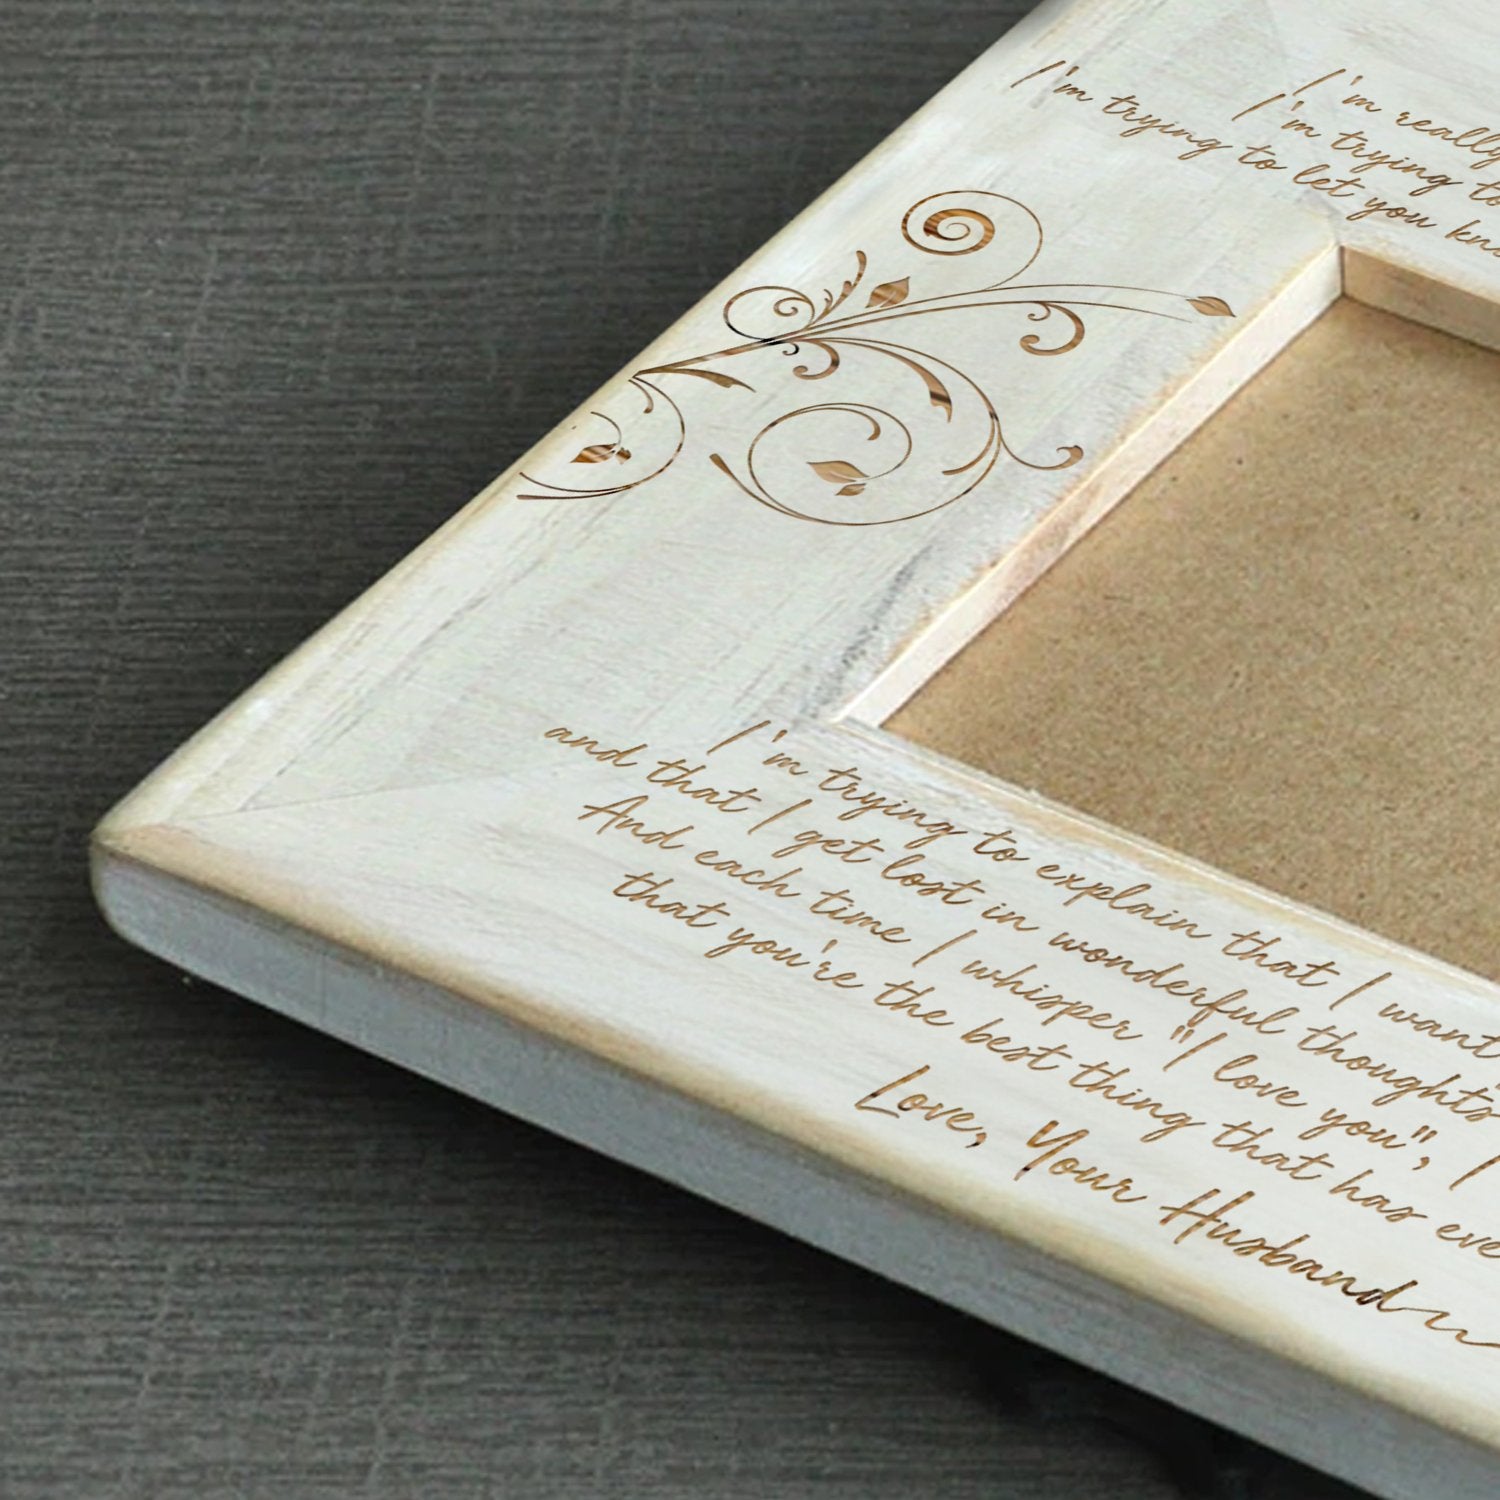 I'm really
I'm trying to
I'm trying to let you
I'm trying to explain that I want
and that I get lost in wonderful thoughts
And each time I whisper "I love you", I
that you're the best thing that has
Love, Your Husband